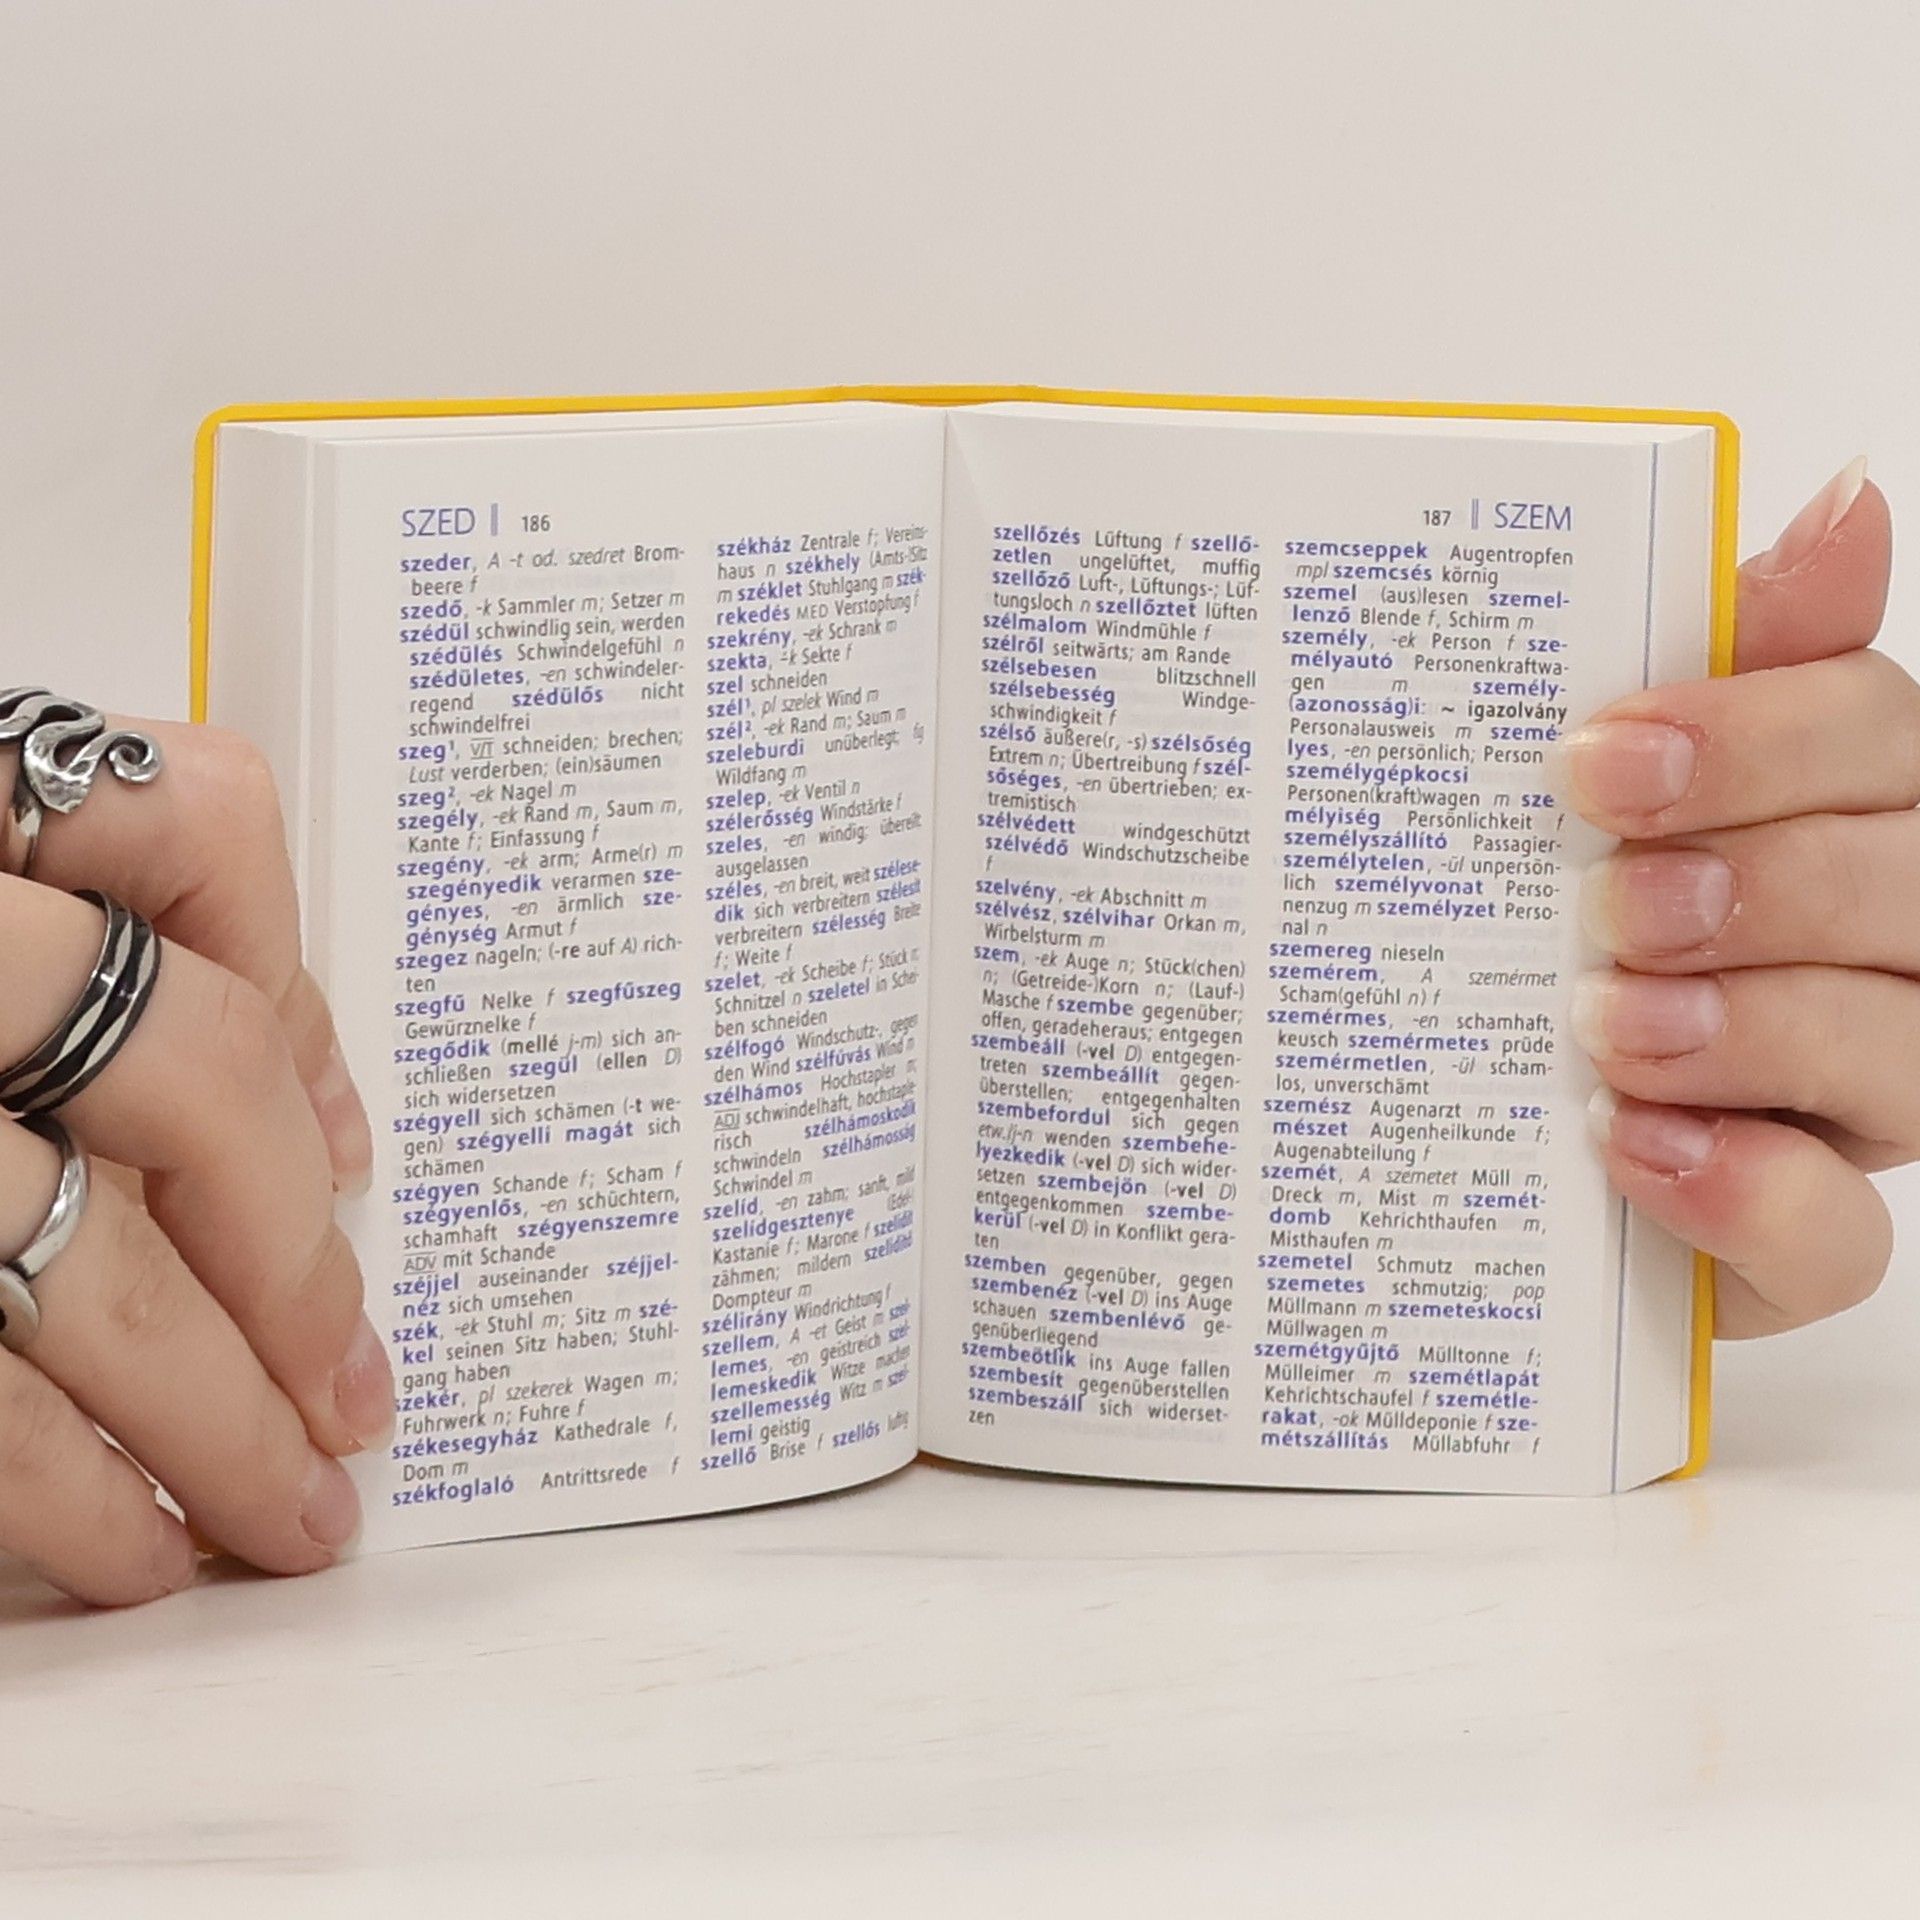 SZED 186
szeder, A -t od. szedret Brom-
beere f
szedő, -k Sammler m; Setzer m
szédül schwindlig sein, werden
szédülés Schwindelgefühl n
szédületes, -en schwindeler-
regend szédülős nicht
schwindelfrei
szeg¹, V/T schneiden; brechen;
Lust verderben; (ein)säumen
szeg², -ek Nagel m
szegély, -ek Rand m, Saum m,
Kante f; Einfassung f
szegény, -ek arm; Arme(r) m
szegényedik verarmen sze-
gényes, -en ärmlich sze-
génység Armut f
szegez nageln; (-re auf A) rich-
ten
szegfű Nelke f szegfűszeg
Gewürznelke f
szegődik (mellé j-m) sich an-
schließen szegül (ellen D)
sich widersetzen
szégyell sich schämen (-t we-
gen) szégyelli magát sich
schämen
szégyen Schande f; Scham f
szégyenlős, -en schüchtern,
schamhaft szégyenszemre
ADV mit Schande
széjjel auseinander széjjel-
néz sich umsehen
szék, -ek Stuhl m; Sitz m szé-
kel seinen Sitz haben; Stuhl-
gang haben
szekér, pl szekerek Wagen m;
Fuhrwerk n; Fuhre f
székesegyház Kathedrale f,
Dom m
székfoglaló Antrittsrede f
székház Zentrale f; Vereins-
haus n székhely (Amts-)Sitz
m széklet Stuhlgang m szék-
rekedés MED Verstopfung f
szekrény, -ek Schrank m
szekta, -k Sekte f
szel schneiden
szél¹, pl szelek Wind m
szél², -ek Rand m; Saum m
szeleburdi unüberlegt; fig
Wildfang m
szelep, -ek Ventil n
szélerősség Windstärke f
szeles, -en windig; übereilt
ausgelassen
széles, -en breit, weit szélese-
dik sich verbreitern szélesít
verbreitern szélesség Breite
f; Weite f
szelet, -ek Scheibe f; Stück n;
Schnitzel n szeletel in Schei-
ben schneiden
szélfogó Windschutz-, gegen
den Wind szélfúvás Wind m
szélhámos Hochstapler m;
ADJ schwindelhaft, hochstaple-
risch szélhámoskodik
schwindeln szélhámosság
Schwindel m
szelíd, -en zahm; sanft, mild
szelídgesztenye (Edel-)
Kastanie f; Marone f szelídít
zähmen; mildern szelídítő
Dompteur m
szélirány Windrichtung f
szellem, A -et Geist m szel-
lemes, -en geistreich szel-
lemeskedik Witze machen
szellemesség Witz m szel-
lemi geistig
szellő Brise f szellős luftig
187 SZEM
szellőzés Lüftung f szellő-
zetlen ungelüftet, muffig
szellőző Luft-, Lüftungs-; Lüf-
tungsloch n szellőztet lüften
szélmalom Windmühle f
szélről seitwärts; am Rande
szélsebesen blitzschnell
szélsebesség Windge-
schwindigkeit f
szélső äußere(r, -s) szélsőség
Extrem n; Übertreibung f szél-
sőséges, -en übertrieben; ex-
tremistisch
szélvédett windgeschützt
szélvédő Windschutzscheibe
f
szelvény, -ek Abschnitt m
szélvész, szélvihar Orkan m,
Wirbelsturm m
szem, -ek Auge n; Stück(chen)
n; (Getreide-)Korn n; (Lauf-)
Masche f szembe gegenüber;
offen, geradeheraus; entgegen
szembeáll (-vel D) entgegen-
treten szembeállít gegen-
überstellen; entgegenhalten
szembefordul sich gegen
etw./j-n wenden szembehe-
lyezkedik (-vel D) sich wider-
setzen szembejön (-vel D)
entgegenkommen szembe-
kerül (-vel D) in Konflikt gera-
ten
szemben gegenüber, gegen
szembenéz (-vel D) ins Auge
schauen szembenlévő ge-
genüberliegend
szembeötlik ins Auge fallen
szembesít gegenüberstellen
szembeszáll sich widerset-
zen
szemcseppek Augentropfen
mpl szemcsés körnig
szemel (aus)lesen szemel-
lenző Blende f, Schirm m
személy, -ek Person f sze-
mélyautó Personenkraftwa-
gen m személy-
(azonosság)i: ~ igazolvány
Personalausweis m szemé-
lyes, -en persönlich; Person
személygépkocsi
Personen(kraft)wagen m sze
mélyiség Persönlichkeit f
személyszállító Passagier-
személytelen, -ül unpersön-
lich személyvonat Perso-
nenzug m személyzet Perso-
nal n
szemereg nieseln
szemérem, A szemérmet
Scham(gefühl n) f
szemérmes, -en schamhaft,
keusch szemérmetes prüde
szemérmetlen, -ül scham-
los, unverschämt
szemész Augenarzt m sze-
mészet Augenheilkunde f;
Augenabteilung f
szemét, A szemetet Müll m,
Dreck m, Mist m szemét-
domb Kehrichthaufen m,
Misthaufen m
szemetel Schmutz machen
szemetes schmutzig; pop
Müllmann m szemeteskocsi
Müllwagen m
szemétgyűjtő Mülltonne f;
Mülleimer m szemétlapát
Kehrichtschaufel f szemétle-
rakat, -ok Mülldeponie f sze-
métszállítás Müllabfuhr f